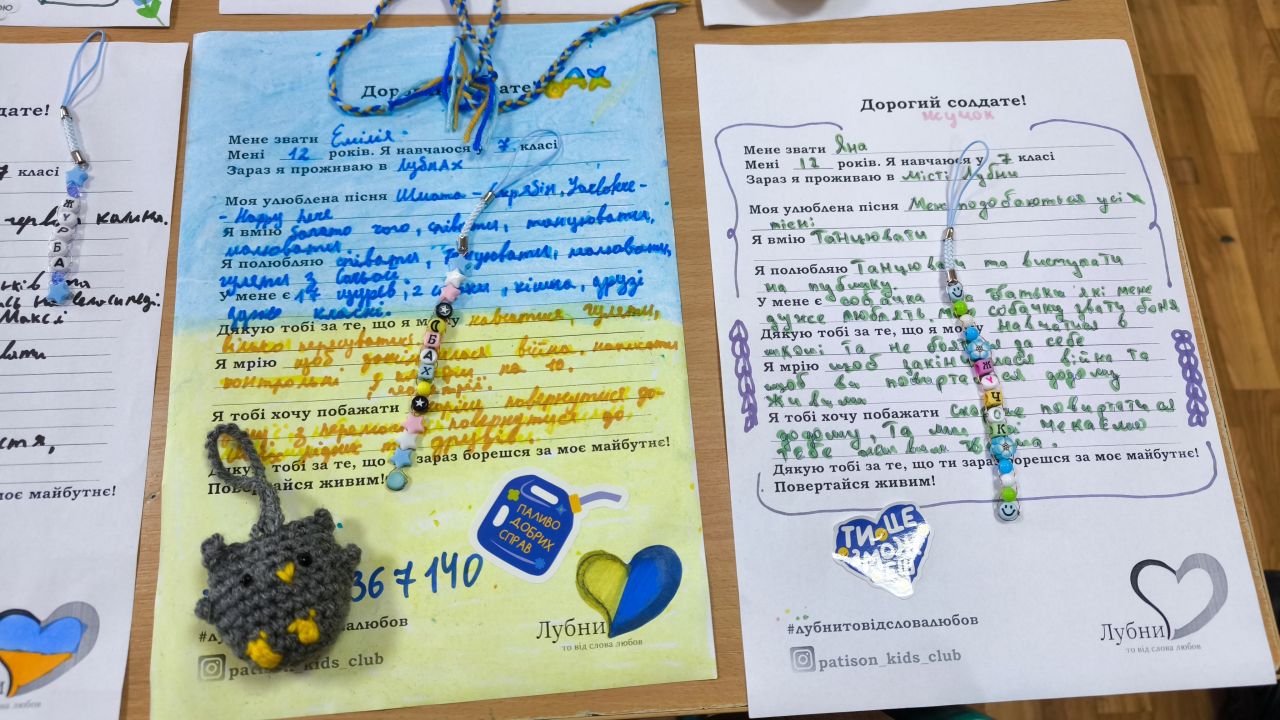 солдате!
7 класі
калина.
Ж У Р Б А
за моє майбутнє!
Дорогий солдате!
Мене звати Емілія.
Мені 12 років. Я навчаюся у 7 класі
Зараз я проживаю в Лубнах
Моя улюблена пісня Шмата - Скрябін,
- Happy here
Я вмію багато чого, співати, танцювати,
малювати.
Я полюбляю співати, танцювати, малювати,
гуляти з
У мене є 17 щурів, 2 кішка, друзі
дуже класні.
Дякую тобі за те, що я можу навчатися, гуляти,
вільно пересуватися
Я мрію щоб закінчилася війна, написати
контрольні з на 10.
Я тобі хочу побажати скоріше повернутися до-
дому з перемогою повернутися до
рідних та друзів.
Дякую тобі за те, що ти зараз борешся за моє майбутнє!
Повертайся живим!
Б А Х
ПАЛИВО
ДОБРИХ
СПРАВ
367140
Лубни
то від слова любов
#лубнитовідсловалюбов
patison_kids_club
Дорогий солдате!
жучок
Мене звати Яна
Мені 12 років. Я навчаюся у 7 класі
Зараз я проживаю в місті Лубни
Моя улюблена пісня Мені подобаються усі
пісні
Я вмію танцювати
Я полюбляю танцювати та виступати
на публіку.
У мене є собачка та батьки які мене
дуже люблять. мою собачку звати боня
Дякую тобі за те, що я можу навчатися в
школі та не боятися за себе
Я мрію щоб закінчилася війна та
щоб ви поверталися додому
живими
Я тобі хочу побажати скоріше повертатися
додому, та ми чекаємо
тебе
Дякую тобі за те, що ти зараз борешся за моє майбутнє!
Повертайся живим!
Ж У Ч О К
ТИ ЦЕ
ЗМОЖЕШ
Лубни
то від слова любов
#лубнитовідсловалюбов
patison_kids_club